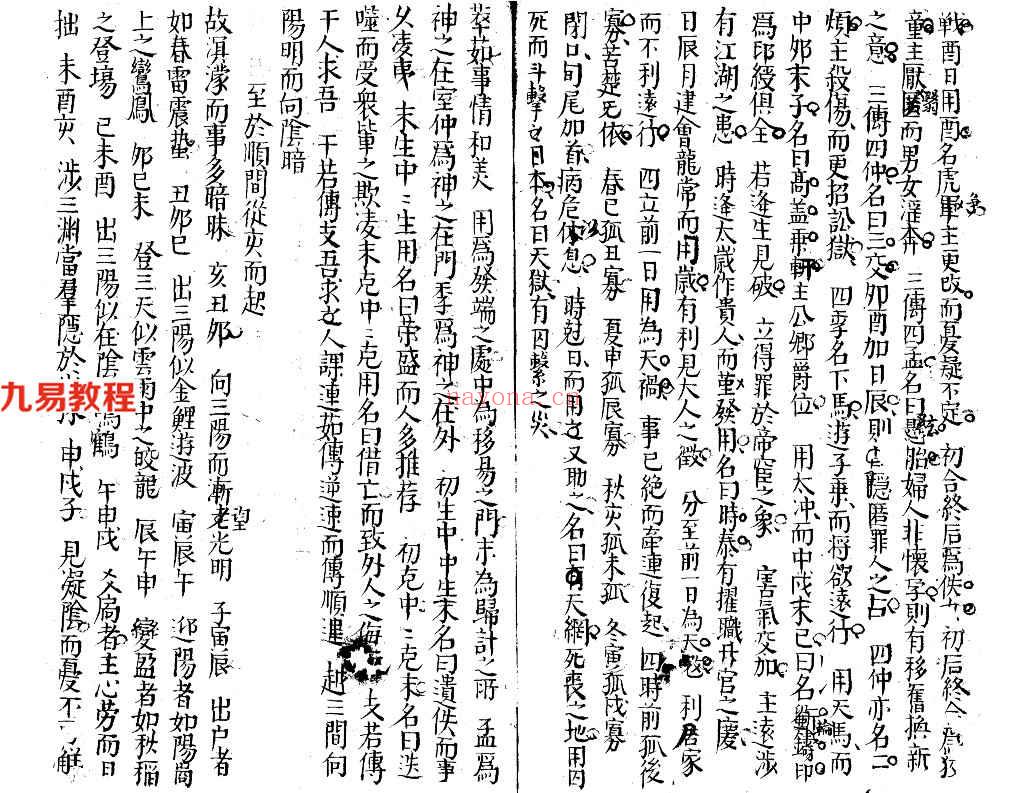 戰酉日用酉名虎 主更改而憂疑不定 初合終后爲佚女 初后終合爲狡
童主厭翳匿而男女淫奔 三傳四孟名曰懸胎婦人非懷孕則有移舊換新
之意 三傳四仲名曰二交卯酉加日辰則主隱匿罪人之占 四仲亦名二
煩主殺傷而更招訟獄 四季名下馬游子乗而将欲遠行 用天馬而
中卯末子名曰髙盖乘軒主公卿爵位 用太冲而中戌末巳曰名斵輪鑄印
爲印綬俱全 若逢生見破 立得罪於帝宦之象 害氣交加 主遠涉
有江湖之患 時逢太歲作貴人而 發用名曰時泰有擢職升官之慶
日辰月建會龍常而用歲有利見大人之徵 分至前一日為天 利居家
而不利遠行 四立前一日用為天禍 事已絶而牽連復起 四時前孤後
寡分苦楚无依 春巳孤丑寡 夏申孤辰寡 秋亥孤未孤 冬寅孤戌寡
閉口旬尾加首病危休息 時尅日而用又助之名曰 天網死喪之地用囚
死而斗擊 日本名曰天獄有囚繫之災
萃茹事情和美 用爲發端之處中為移易之門末為歸計之所 孟爲
神之在室仲爲神之在門季爲神之在外 初生中中生末名曰遺佚而事
久凌夷 末生中中生用名曰荣盛而人多推荐 初克中中克末名曰迭
噬而受衆輩之欺凌末克中中克用名曰借亡而致外人之侮 支若傳
干人求吾 干若傳支吾求之人課連茹傳逆連而傳順連 越三間向
陽明而向陰暗
至於順間從亥而起
故溟濛而事多暗昧 亥丑卯 向三陽而漸望光明 子寅辰 出户者
如春雷震蛰 丑卯巳 出三陽似金鯉游波 寅辰午 迎陽者如陽啚
上之鸞鳳 卯巳未 登三天似雲雨中之蛟龍 辰午申 變盈者如秋稲
之登場 巳未酉 出三陽似在陰 鶴 午申戌 爻局者主心劳而日
拙 未酉亥 涉三渊當羣隠於 申戌子 見凝陰而憂不 解
九易教程
nayona.cn